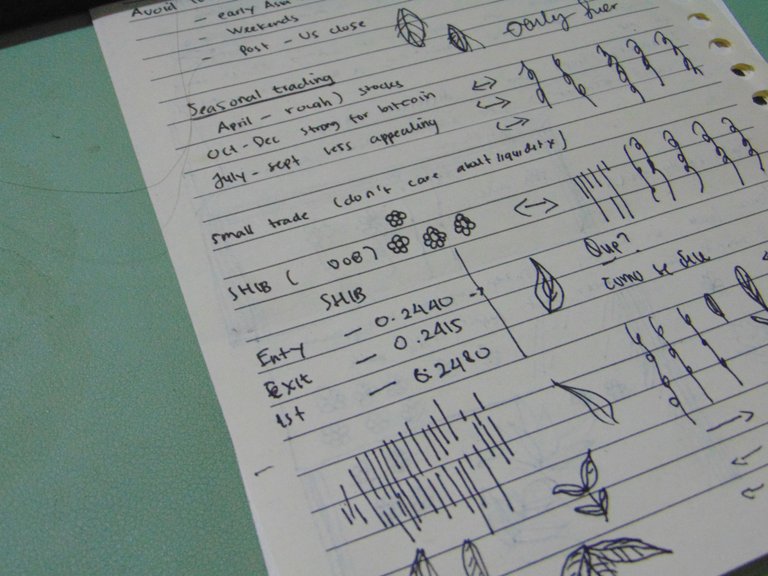 Avoid
- early Asia
- Weekends
- Post - US close
only
Seasonal trading
April - rough) stocks
Oct-Dec strong for bitcoin
July - sept less appealing
small trade (don't care about liquidity)
SHIB ( DOG)
SHIB
Que?
como se
Enty - 0.2440 ->
Exit - 0.2415
1st - 0.2480